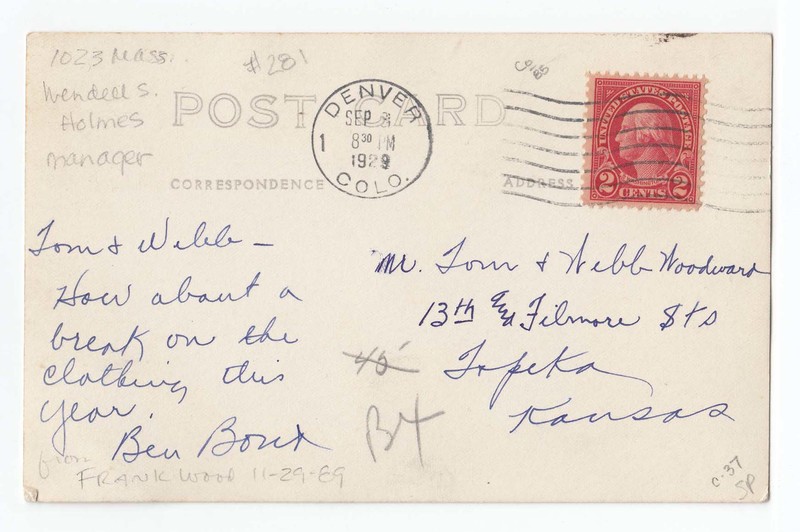 1023 Mass.
#281
Wendell S.
Holmes
manager
POST CARD
CORRESPONDENCE
ADDRESS
DENVER
SEP
1
8 30 PM
1929
COLO.
UNITED STATES POSTAGE
2 CENTS 2
Tom & Webb —
How about a
break on the
clothing this
year.
Ben
from
FRANK WOOD 11-29-89
Mr. Tom & Webb Woodward
13th and Filmore Sts
Topeka
Kansas
45
B4
C-37
SP